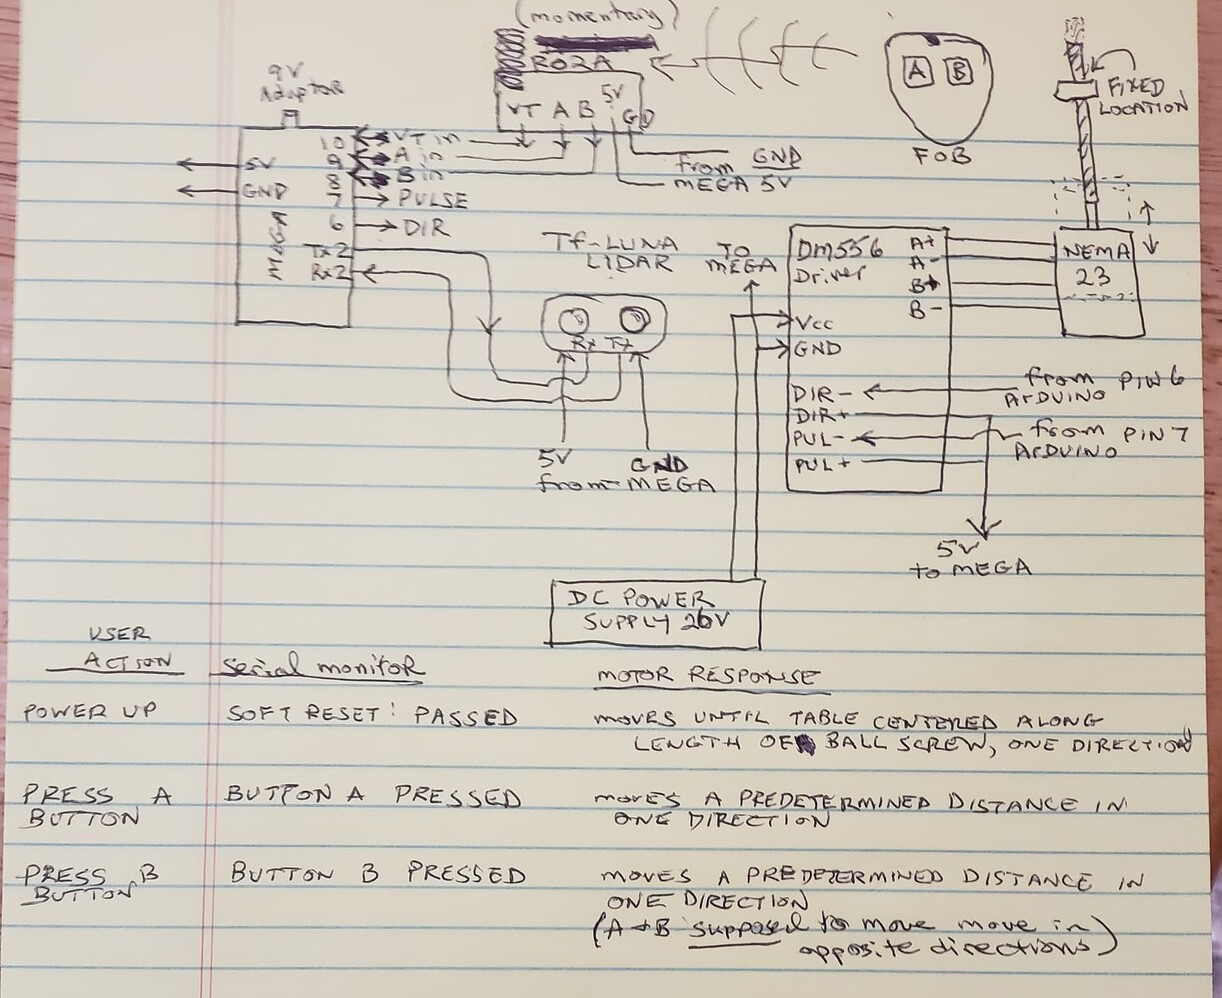 (momentary)
R02A
VT A B 5V GD
A B
FOB
FIXED
LOCATION
9V
Adaptor
10 VT in
9 A in
8 B in
7 PULSE
6 DIR
Tx2
Rx2
5V
GND
MEGA
from GND
MEGA 5V
Tf-LUNA
LIDAR
Rx Tx
5V GND
from MEGA
TO
MEGA
DM556
Driver
A+
A-
B+
B-
Vcc
GND
DIR-
DIR+
PUL-
PUL+
NEMA
23
from PIN 6
ArDUINO
from PIN 7
ArDUINO
5V
to MEGA
DC POWER
SUPPLY 26V
USER
ACTION
Serial monitor
MOTOR RESPONSE
POWER UP
SOFT RESET: PASSED
MOVES UNTIL TABLE CENTERED ALONG
LENGTH OF BALL SCREW, ONE DIRECTION
PRESS A
BUTTON
BUTTON A PRESSED
MOVES A PREDETERMINED DISTANCE IN
ONE DIRECTION
PRESS B
BUTTON
BUTTON B PRESSED
MOVES A PREDETERMINED DISTANCE IN
ONE DIRECTION
(A+B supposed to move move in
opposite directions)